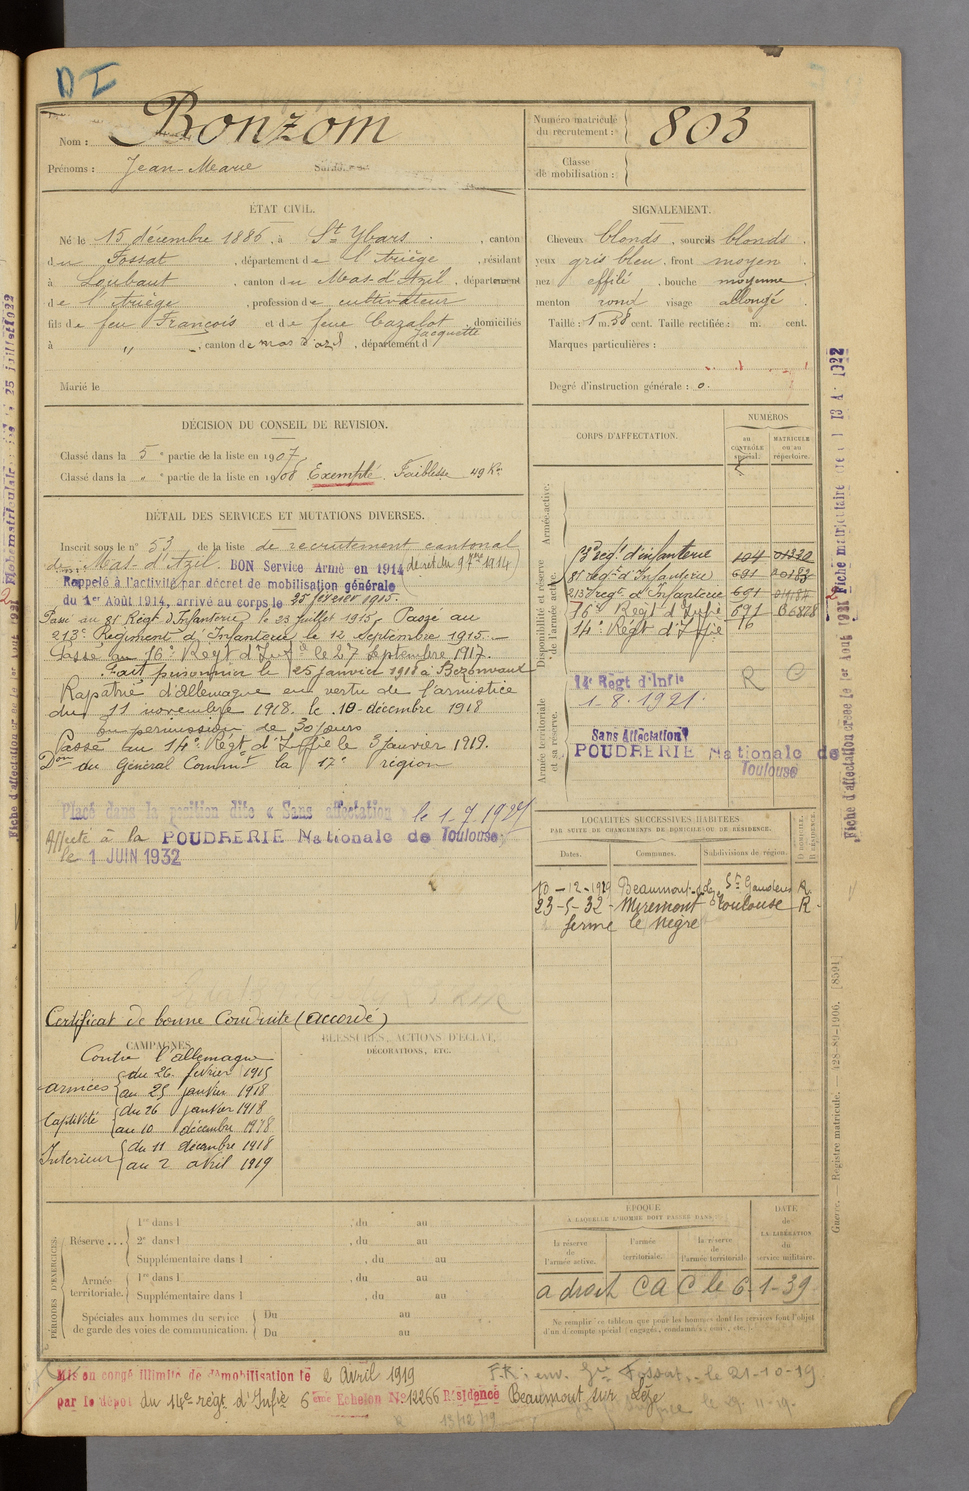 DI
Nom : Bonzom
Prénoms : Jean-Marie
Numéro matricule du recrutement : 803
Classe de mobilisation :
ÉTAT CIVIL.
Né le 15 décembre 1886, à St Ybars, canton
du Fossat, département de l'Ariège, résidant
à Loubaut, canton du Mas-d'Azil, département
de l'Ariège, profession de cultivateur
fils de feu François et de feue Cazalot Jacquette, domiciliés
à " , canton de mas d'azil, département d
Marié le
SIGNALEMENT.
Cheveux blonds, sourcils blonds.
yeux gris bleu, front moyen
nez effilé, bouche moyenne
menton rond visage allongé
Taille : 1 m. 58 cent. Taille rectifiée : m. cent.
Marques particulières :
Degré d'instruction générale : 0.
DÉCISION DU CONSEIL DE REVISION.
Classé dans la 5e partie de la liste en 1907
Classé dans la " e partie de la liste en 1908 Exempté. Faiblesse 49 K
DÉTAIL DES SERVICES ET MUTATIONS DIVERSES.
Inscrit sous le n° 53 de la liste de recrutement cantonal
de Mas-d'Azil. BON Service Armé en 1914 (décret du 9 7bre 1914)
Rappelé à l'activité par décret de mobilisation générale
du 1er Août 1914, arrivé au corps le 25 février 1915.
Passé au 81 Régt d'Infanterie le 23 juillet 1915. Passé au
213e Régiment d'Infanterie le 12 Septembre 1915.
Passé au 16e Régt d'Infie le 27 septembre 1917.
Fait prisonnier le 25 janvier 1918 à Bezonvaux
Rapatrié d'Allemagne en vertu de l'armistice
du 11 novembre 1918. le 10 décembre 1918
en permission de 30 jours
Passé au 14e Régt d'Infie le 3 Janvier 1919.
Don du Général Commt la 17e région
Placé dans la position dite « Sans affectation » le 1-7-1927
Affecté à la POUDRERIE Nationale de Toulouse.
le 1 JUIN 1932
CORPS D'AFFECTATION.
NUMÉROS
au CONTRÔLE spécial.
MATRICULE ou au répertoire.
Armée active.
Disponibilité et réserve de l'armée active.
Armée territoriale et sa réserve.
régt d'infanterie
81 régt d'Infanterie 691
213 régt d'Infanterie 691
Régt d'Infie 691
14e Régt d'Infie 16
14e Regt d'Infie R
1-8-1921.
Sans Affectation
POUDRERIE Nationale de
Toulouse
LOCALITÉS SUCCESSIVES HABITÉES
PAR SUITE DE CHANGEMENTS DE DOMICILE OU DE RÉSIDENCE.
Dates. Communes. Subdivisions de région. D DOMICILE. R RÉSIDENCE.
10-12-1919 Beaumont St Gaudens R.
23-5-32 - Miremont Toulouse R.
ferme le Nègre
Certificat de bonne Conduite (accordé)
CAMPAGNES.
Contre l'allemagne
armées { du 26 février 1915
au 25 janvier 1918
Captivité { du 26 janvier 1918
au 10 décembre 1918
Intérieur { du 11 décembre 1918
au 2 avril 1919
BLESSURES, ACTIONS D'ÉCLAT,
DÉCORATIONS, ETC.
PÉRIODES D'EXERCICES.
Réserve ... 1re dans l , du au
2e dans l , du au
Supplémentaire dans l , du au
Armée territoriale. 1re dans l , du au
Supplémentaire dans l , du au
Spéciales aux hommes du service de garde des voies de communication. Du au
Du au
ÉPOQUE
À LAQUELLE L'HOMME DOIT PASSER DANS
la réserve de l'armée active.
l'armée territoriale.
la réserve de l'armée territoriale
DATE de LA LIBÉRATION du service militaire.
a droit CAC le 6-1-39
Ne remplir ce tableau que pour les hommes dont les services font l'objet
d'un décompte spécial (engagés, condamnés, omis, etc.).
Mis en congé illimité de démobilisation le 2 Avril 1919
par le dépôt du 14e régt d'Infie 6ème Echelon N° 12266 Résidence Beaumont sur Lèze
le 21-10-19
le 29-11-19
13/12/19
Guerre. — Registre matricule. — 128-89-1906. [8591]